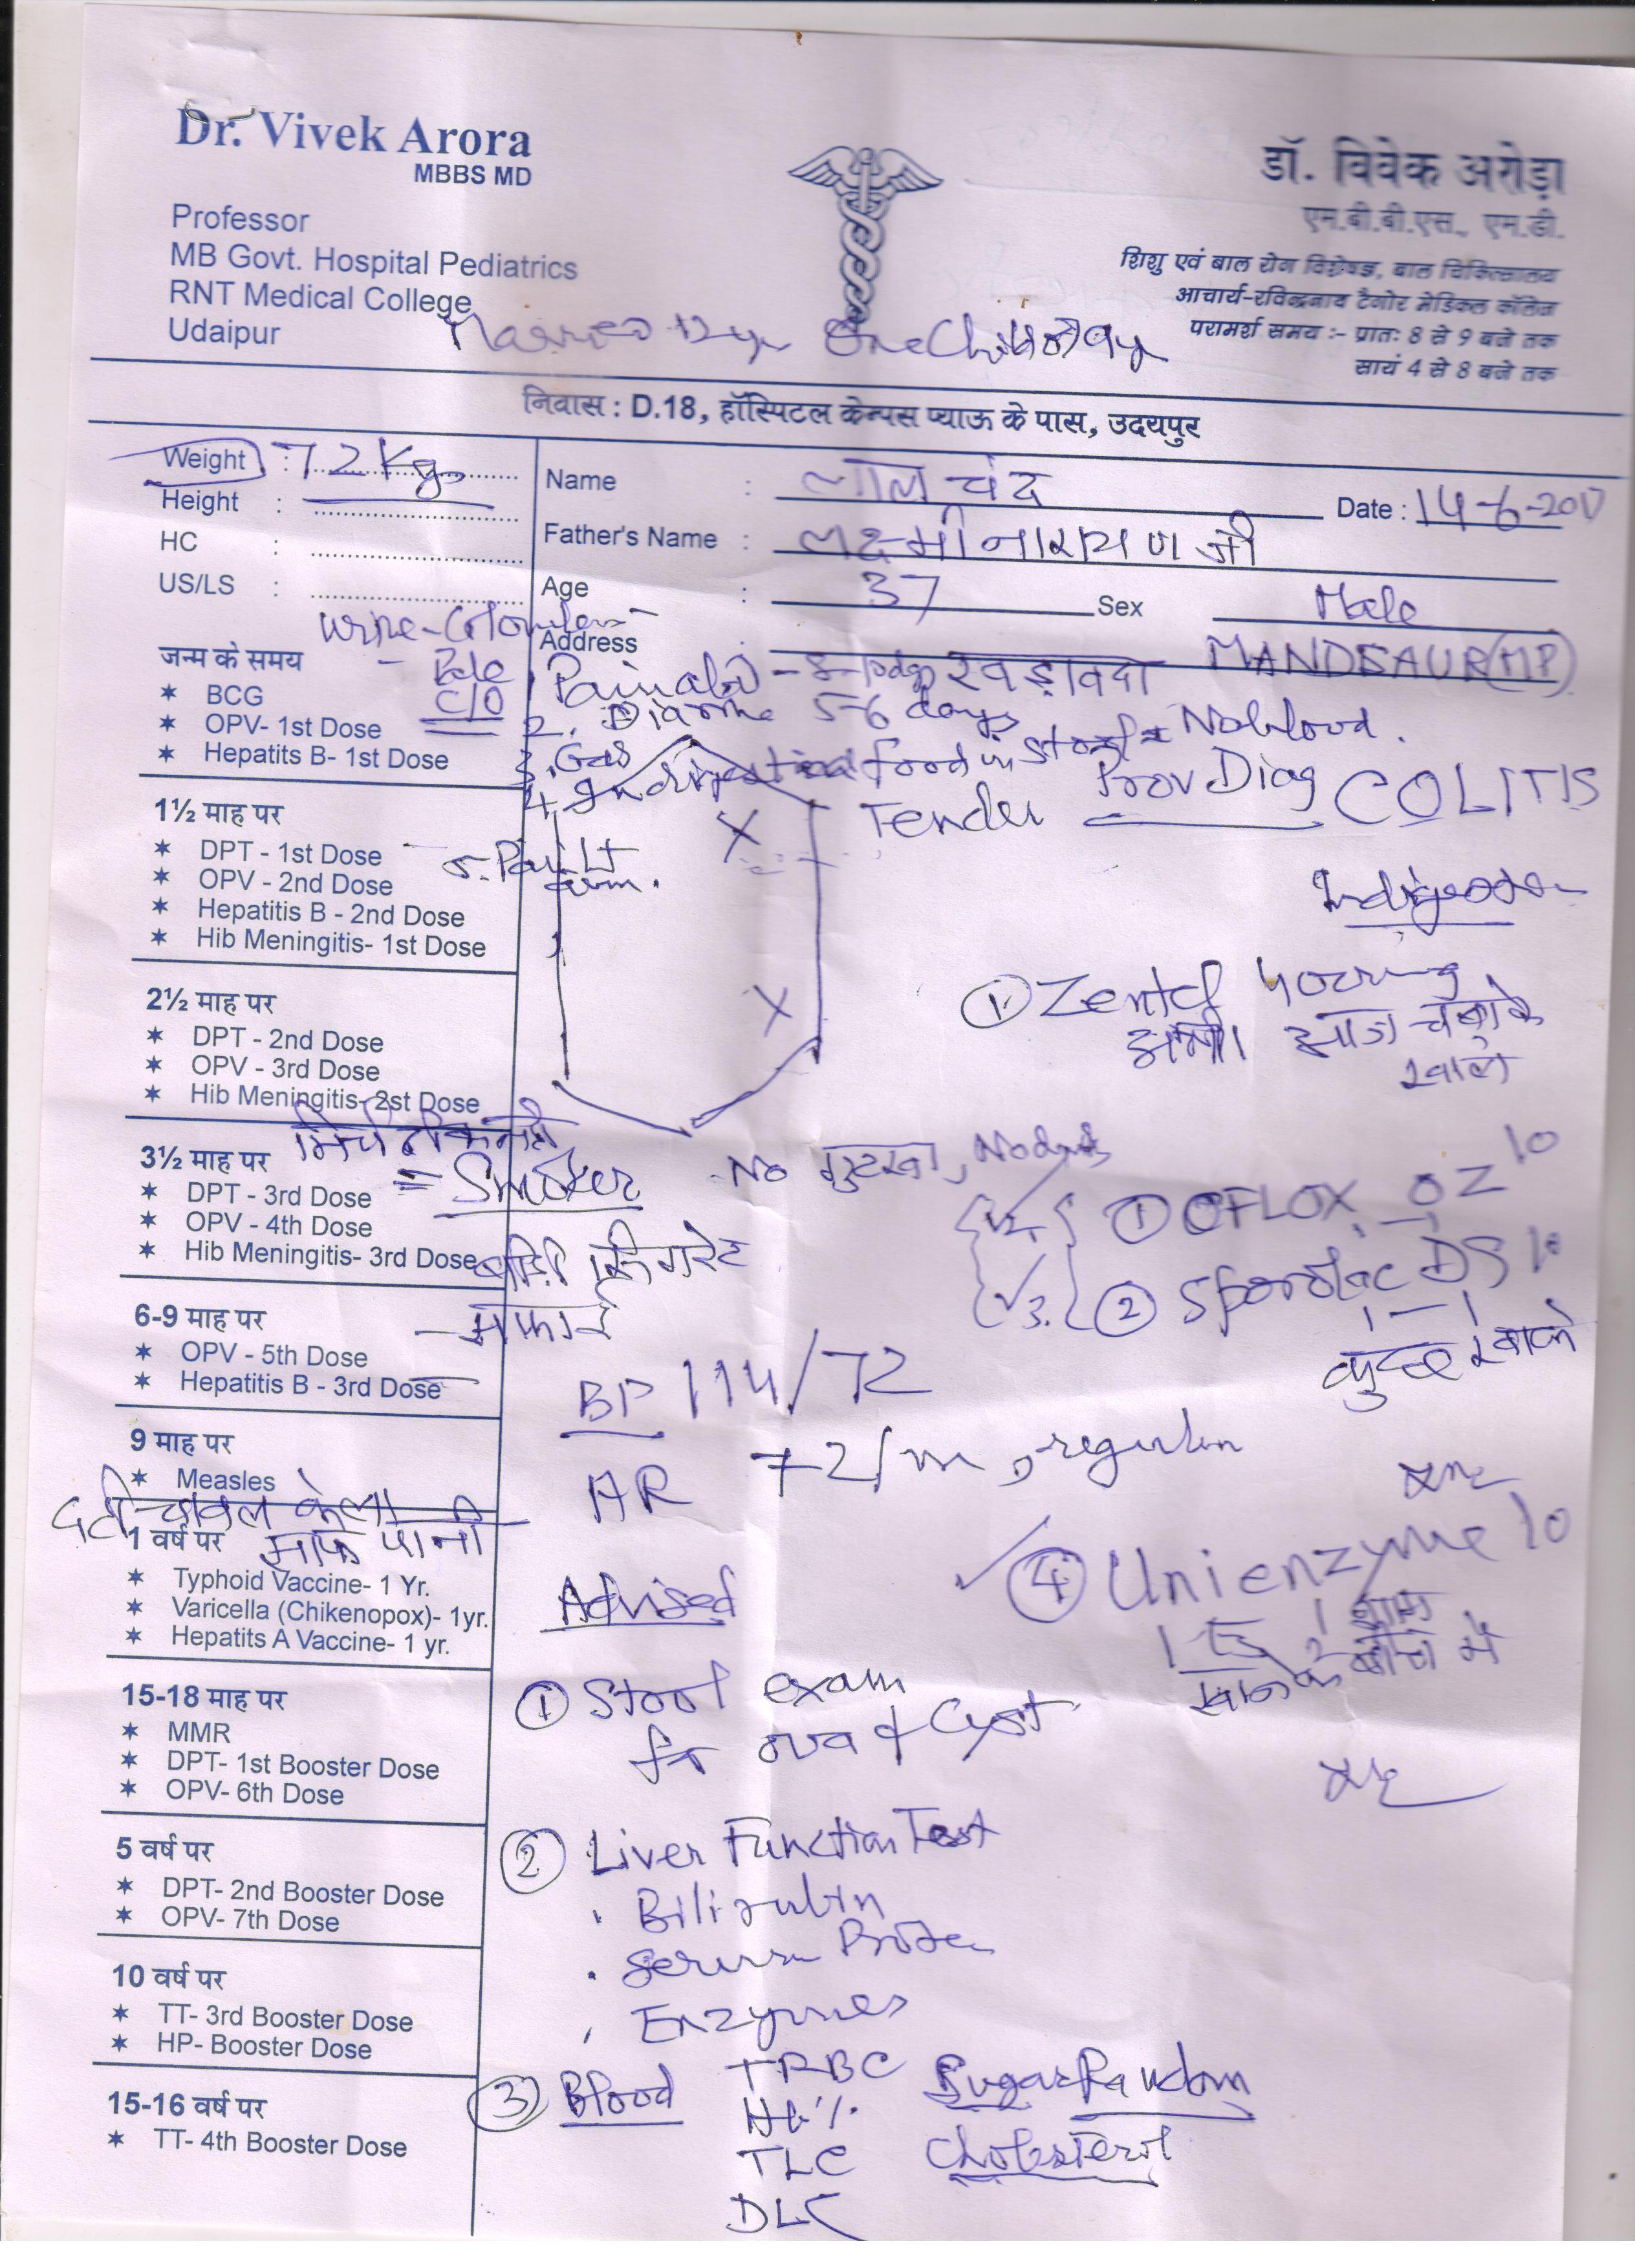 Dr. Vivek Arora
MBBS MD
Professor
MB Govt. Hospital Pediatrics
RNT Medical College
Udaipur
डॉ. विवेक अरोड़ा
एम.बी.बी.एस., एम.डी.
शिशु एवं बाल रोग विशेषज्ञ, बाल चिकित्सालय
आचार्य-रविन्द्रनाथ टैगोर मेडिकल कॉलेज
परामर्श समय :- प्रातः 8 से 9 बजे तक
सायं 4 से 8 बजे तक
Married 12 yr One Child 9 yr
निवास : D.18, हॉस्पिटल केम्पस प्याऊ के पास, उदयपुर
Weight : 72 Kg
Height :
HC :
US/LS :
Name : लाल चंद
Date : 14-6-2017
Father's Name : लक्ष्मीनारायण जी
Age : 37 Sex Male
Address : खड़ावदा MANDSAUR (MP)
Urine-
- Pale
C/O
1. Pain abd - 8-10 days
2. Diarrhea 5-6 days
3. Gas
4. food in stool No blood.
5. Pain Lt arm.
X Tender
X
Prov Diag COLITIS
Indigestion
① Zentel 400 mg
आज चबाके
खाले
No गुटखा, No
= Smoker
बीड़ी सिगरेट
2. ① OFLOX OZ 10
3. ② Sporolac DS 10
1 — 1
BP 114/72
HR 72/m, regular
④ Unienzyme 10
1 सुबह 1 शाम
खाने के बीच में
दही चावल केला
साफ पानी
Advised
① Stool exam
for ova & Cyst
② Liver Function Test
. Bilirubin
. Serum Protein
. Enzymes
③ Blood TRBC Sugar Random
Hb%. Cholesterol
TLC
DLC
जन्म के समय
BCG
OPV- 1st Dose
Hepatits B- 1st Dose
1½ माह पर
DPT - 1st Dose
OPV - 2nd Dose
Hepatitis B - 2nd Dose
Hib Meningitis- 1st Dose
2½ माह पर
DPT - 2nd Dose
OPV - 3rd Dose
Hib Meningitis- 2st Dose
3½ माह पर
DPT - 3rd Dose
OPV - 4th Dose
Hib Meningitis- 3rd Dose
6-9 माह पर
OPV - 5th Dose
Hepatitis B - 3rd Dose
9 माह पर
Measles
1 वर्ष पर
Typhoid Vaccine- 1 Yr.
Varicella (Chikenopox)- 1yr.
Hepatits A Vaccine- 1 yr.
15-18 माह पर
MMR
DPT- 1st Booster Dose
OPV- 6th Dose
5 वर्ष पर
DPT- 2nd Booster Dose
OPV- 7th Dose
10 वर्ष पर
TT- 3rd Booster Dose
HP- Booster Dose
15-16 वर्ष पर
TT- 4th Booster Dose